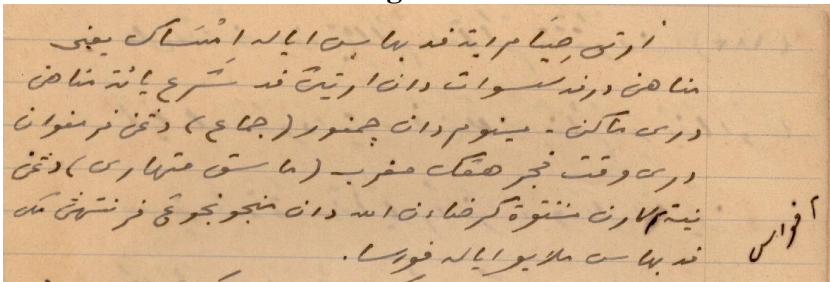 ارتى صِيَام ايت فد بهاس اياله اِمْسَاك يعنى
مناهن درفد سسوات دان ارتيڽ فد شرع يائت مناهن
درى ماكن - مينوم دان چمفور (جماع) دڠن فرمفوان
درى وقت فجر هڠݢ مغرب (ماسق متهارى) دڠن
نية كارن منتوة كرضاءن الله دان منجونجوڠ فرنتهڽ مك
فد بهاس ملايو اياله فورسا.
فواس